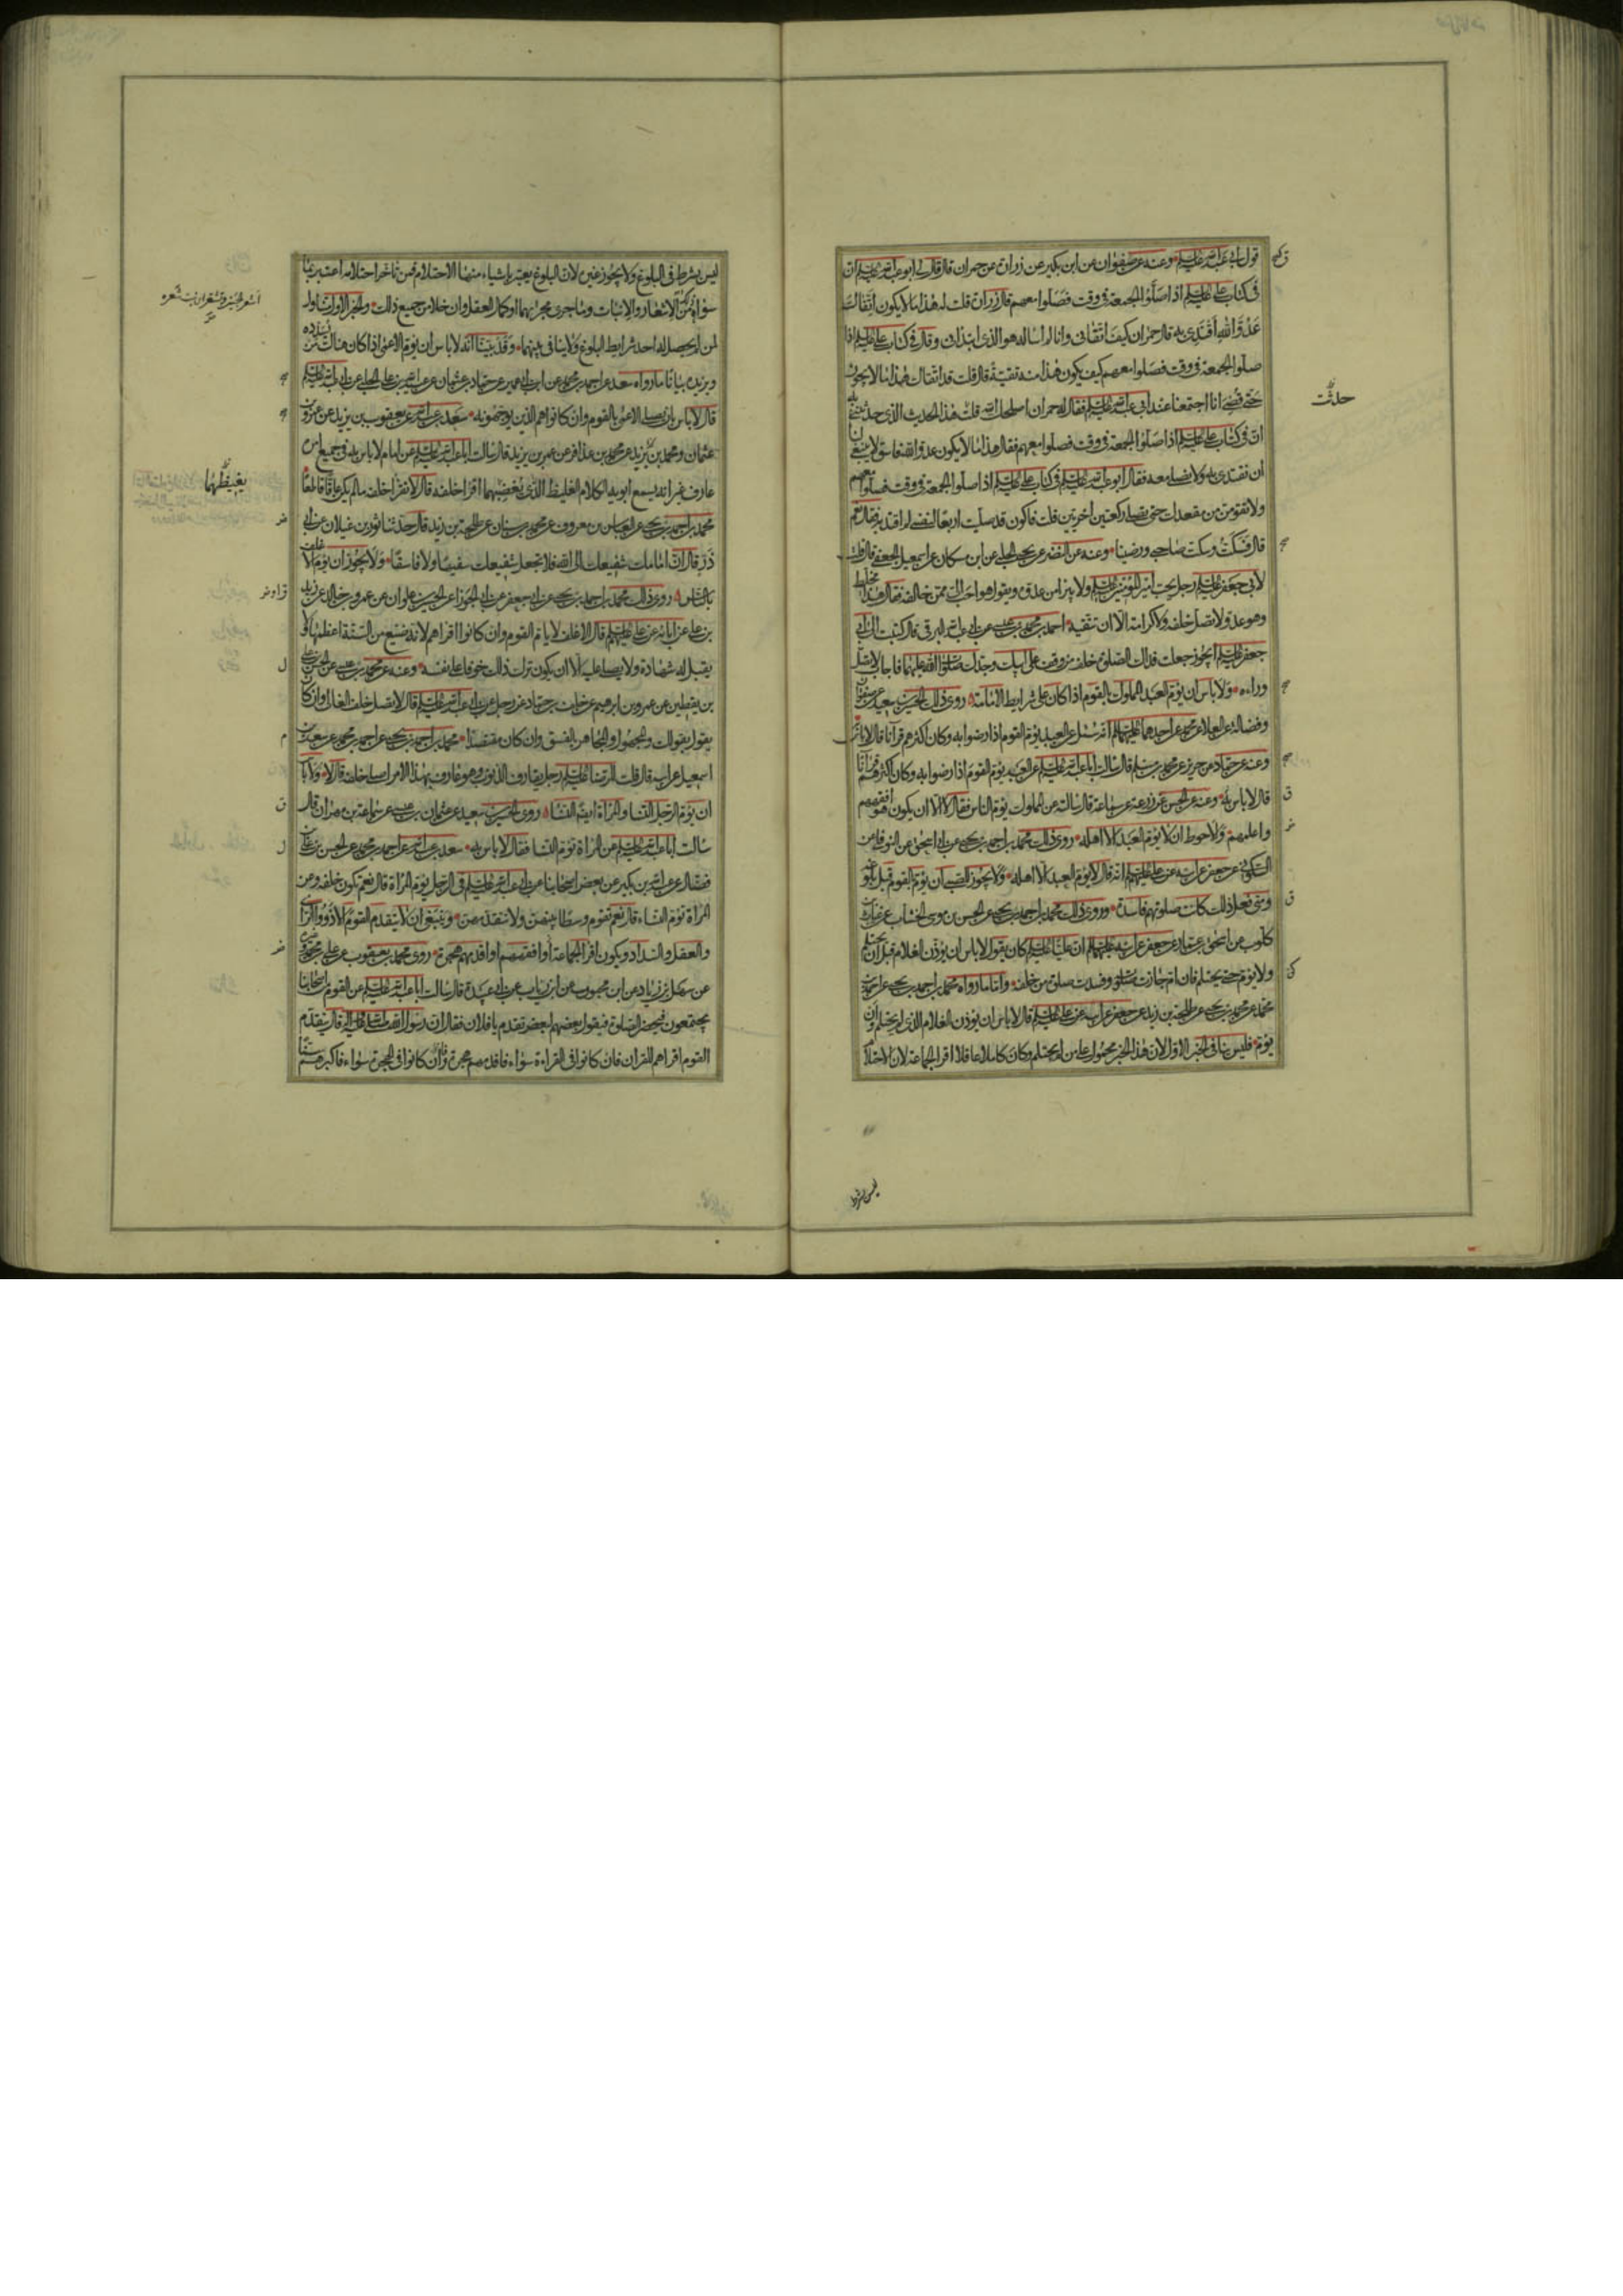 قول ابي عبد الله عليه السلم وعنه عن صفوان عن ابن بكير عن زرارة عن حمران قال قال لي ابو عبد الله عليه السلم ان
في كتاب علي عليه السلم اذا صلوا الجمعة في وقت فصلوا معهم قال زرارة قلت له هذا ما لا يكون اتقاك
عدو الله اقتدي به قال حمران كيف اتقاني وانا لم اساله هو الذي ابتداني وقال في كتاب علي عليه السلم اذا
صلوا الجمعة في وقت فصلوا معهم كيف يكون هذا منه تقية قال قلت قد اتقاك هذا مما لا يجوز
حتى قضي انا اجتمعنا عند ابي عبد الله عليه السلم فقال له حمران اصلحك الله حدثت هذا الحديث الذي حدثتني به
ان في كتاب علي عليه السلم اذا صلوا الجمعة في وقت فصلوا معهم فقال هذا ما لا يكون عدو الله فاسق لا ينبغي لنا
ان نقتدي به ولا نصلي معه فقال ابو عبد الله عليه السلم في كتاب علي عليه السلم اذا صلوا الجمعة في وقت فصلوا معهم
ولا تقومن من مقعدك حتى تصلي ركعتين اخريين قلت فاكون قد صليت اربعا لنفسي لم اقتد به فقال نعم
قال فسكت وسكت صاحبي ورضينا وعنه عن النضر عن يحيى الحلبي عن ابن مسكان عن اسمعيل الجعفي قال قلت
لابي جعفر عليه السلم رجل يحب امير المؤمنين عليه السلم ولا يبرا من عدوه ويقول هو احب الي ممن خالفه فقال هذا مخلط
وهو عدو لا تصل خلفه ولا كرامة الا ان تتقيه احمد بن محمد بن عيسى عن ابي عبد الله البرقي قال كتبت الى ابي
جعفر عليه السلم ايجوز جعلت فداك الصلوة خلف من وقف على ابيك وجدك صلوات الله عليهما فاجاب لا تصل
وراءه ولا باس ان يؤم العبد المملوك بالقوم اذا كان على شرايط الامامة روى ذلك الحسين بن سعيد عن صفوان
وفضالة عن العلا عن محمد عن احدهما عليهما السلم انه سئل عن العبد يؤم القوم اذا رضوا به وكان اكثرهم قرآنا قال لا باس به
وعنه عن حماد عن حريز عن محمد بن مسلم قال سالت ابا عبد الله عليه السلم عن العبد يؤم القوم اذا رضوا به وكان اكثرهم قرآنا
قال لا باس به وعنه عن الحسن عن زرعة عن سماعة قال سالته عن المملوك يؤم الناس فقال لا الا ان يكون هو افقههم
واعلمهم ولاحوط ان لا يؤم العبد الا اهله روى ذلك محمد بن احمد بن يحيى عن ابي اسحق عن النوفلي عن
السكوني عن جعفر عن ابيه عن علي عليهم السلم انه قال لا يؤم العبد الا اهله ولا يجوز للصبي ان يؤم القوم قبل بلوغه
ومتى فعل ذلك كانت صلوتهم فاسدة وروى ذلك محمد بن احمد بن يحيى عن الحسن بن موسى الخشاب عن غياث بن
كلوب عن اسحق بن عمار عن جعفر عن ابيه عليهما السلم ان عليا عليه السلم كان يقول لا باس ان يؤذن الغلام قبل ان يحتلم
ولا يؤم حتى يحتلم فان ام جازت صلوته وفسدت صلوة من خلفه واما ما رواه محمد بن احمد بن يحيى عن احمد بن
محمد عن محمد بن يحيى عن طلحة بن زيد عن جعفر عن ابيه عن علي عليه السلم قال لا باس ان يؤذن الغلام الذي لم يحتلم وان
يؤم فليس ينافي الخبر الاول لان هذا الخبر محمول على من لم يحتلم وكان كاملا عاقلا اقرا الجماعة لان الاحتلام
حدثت
ليس بشرط
ليس بشرط في البلوغ ولا يجوز غيره لان البلوغ يعتبر باشياء منها الاحتلام فمن تاخر احتلامه اعتبر بما
سواه من الاشعار والانبات وما جرى مجريهما او كمال العقل وان خلا من جميع ذلك والخبر الاول متناول
لمن لم يحصل له احد شرايط البلوغ ولا ينافي بينهما وقد بينا انه لا باس ان يؤم الاعمى اذا كان هناك من يسدده
ويزيده بيانا ما رواه سعد عن احمد بن محمد عن ابن ابي عمير عن حماد بن عثمان عن عبيد الله بن علي الحلبي عن ابي عبد الله عليه السلم
قال لا باس بان يصلي الاعمى بالقوم وان كانوا هم الذين يوجهونه سعد بن عبد الله عن يعقوب بن يزيد عن عمرو بن
عثمان ومحمد بن يزيد عن محمد بن عذافر عن عمر بن يزيد قال سالت ابا عبد الله عليه السلم عن امام لا باس به في جميع امره
عارف غير انه يسمع ابويه الكلام الغليظ الذي يغضبهما اقرا خلفه قال لا تقرا خلفه ما لم يكن عاقا قاطعا
محمد بن احمد بن يحيى عن العباس بن معروف عن محمد بن سنان عن طلحة بن زيد قال حدثنا ثور بن غيلان عن ابي
ذر قال ان امامك شفيعك الى الله فلا تجعل شفيعك سفيها ولا فاسقا ولا يجوز ان يؤم الاغلف
بالناس روى ذلك محمد بن احمد بن يحيى عن ابي جعفر عن ابي الجوزاء عن الحسين بن علوان عن عمرو بن خالد عن زيد
بن علي عن ابائه عن علي عليهم السلم قال الاغلف لا يؤم القوم وان كان اقراهم لانه ضيع من السنة اعظمها ولا
يقبل له شهادة ولا يصلى عليه الا ان يكون ترك ذلك خوفا على نفسه وعنه عن محمد بن عيسى عن الحسن بن علي
بن يقطين عن عمرو بن ابرهيم عن خلف بن حماد عن رجل عن ابي عبد الله عليه السلم قال لا تصل خلف الغالي وان كان
يقول بقولك والمجهول والمجاهر بالفسق وان كان مقتصدا محمد بن احمد بن يحيى عن احمد بن محمد عن سعد بن
اسمعيل عن ابيه قال قلت للرضا عليه السلم رجل يقارف الذنوب وهو عارف بهذا الامر اصلي خلفه قال لا ولا باس
ان يؤم الرجل النساء والمراة ايضا النساء روى الحسين بن سعيد عن عثمان بن عيسى عن سماعة بن مهران قال
سالت ابا عبد الله عليه السلم عن المراة تؤم النساء فقال لا باس به سعد بن عبد الله عن احمد بن محمد عن الحسن بن علي بن
فضال عن عبد الله بن بكير عن بعض اصحابنا عن ابي عبد الله عليه السلم في الرجل يؤم المراة قال نعم تكون خلفه وعن
المراة تؤم النساء قال نعم تقوم وسطا بينهن ولا تتقدمهن وينبغي ان لا يتقدم القوم الا ذوو الراي
والعقل والسداد ويكون اقرا الجماعة او افقههم او اقدمهم هجرة روى محمد بن يعقوب عن علي بن محمد وغيره
عن سهل بن زياد عن ابن محبوب عن ابن رياب عن ابي عبيدة قال سالت ابا عبد الله عليه السلم عن القوم من اصحابنا
يجتمعون فيحضر الصلوة فيقول بعضهم لبعض تقدم يا فلان فقال ان رسول الله صلى الله عليه واله قال يتقدم
القوم اقراهم للقران فان كانوا في القراءة سواء فاقدمهم هجرة وان كانوا في الهجرة سواء فاكبرهم سنا
يغيظهما